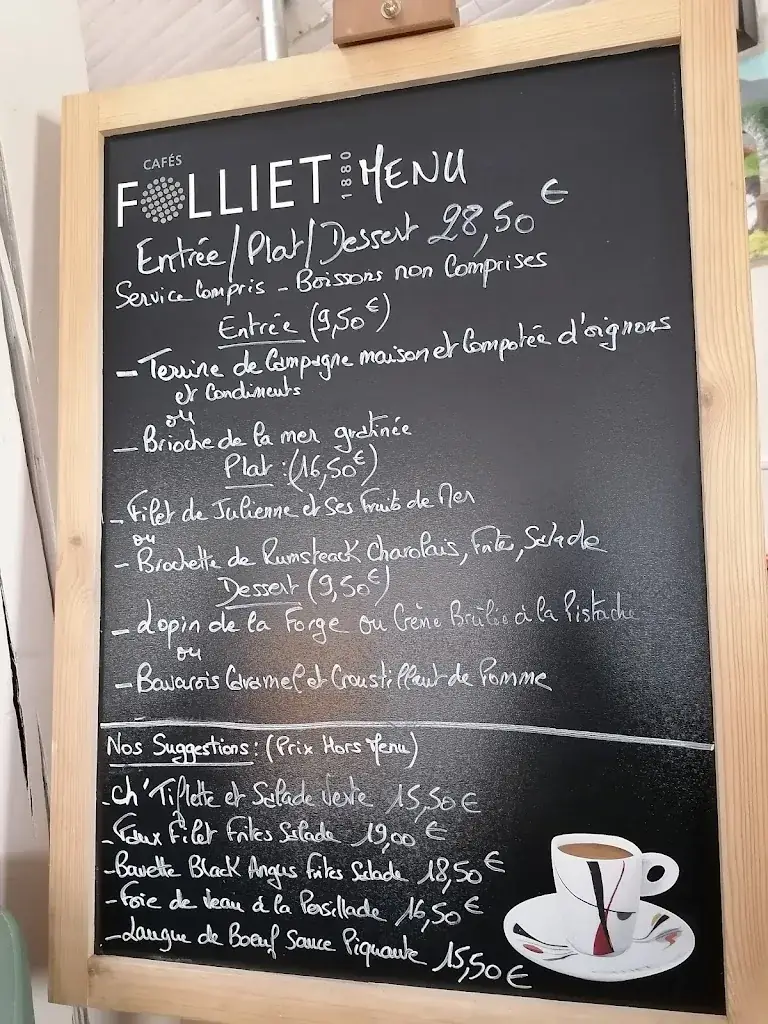 CAFÉS
FOLLIET 1880 MENU
Entrée/Plat/Dessert 28,50€
Service Compris - Boissons non Comprises
Entrée (9,50€)
- Terrine de Campagne maison et Compotée d'oignons
et Condiments
ou
- Brioche de la mer gratinée
Plat : (16,50€)
- Filet de Julienne et Ses Fruits de Mer
ou
- Brochette de Rumsteack Charolais, Frites, Salade
Dessert (9,50€)
- Lopin de la Forge ou Crème Brûlée à la Pistache
ou
- Bavarois Caramel et Croustillant de Pomme
Nos Suggestions : (Prix Hors Menu)
- Ch'Tiflette et Salade Verte 15,50€
- Faux Filet Frites Salade 19,00€
- Bavette Black Angus Frites Salade 18,50€
- Foie de Veau à la Persillade 16,50€
- Langue de Boeuf Sauce Piquante 15,50€